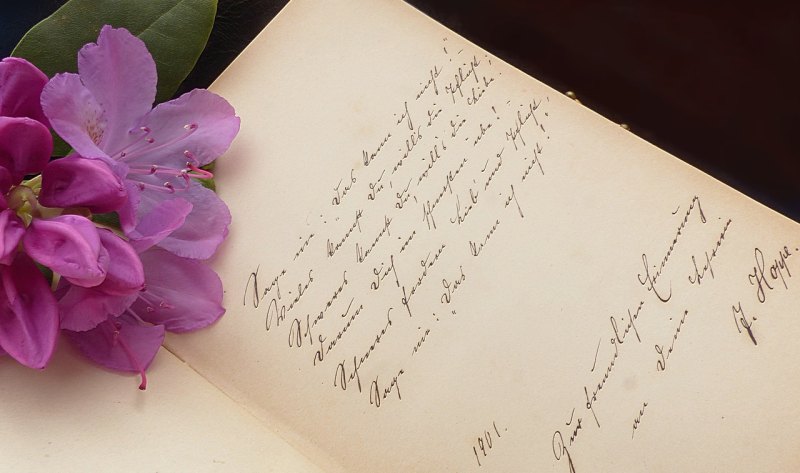 Sage nie: „Das kann ich nicht"! –
Vieles kannst Du, will's die Pflicht;
Schweres kannst Du, will's die Liebe.
Darum Dich im Schwersten übe! –
Schweres fordern Lieb und Pflicht,
Sage nie: „Das kann ich nicht!"
1901.
Zur freundlichen Erinnerung
an Deine Lehrerin
J. Hoppe.